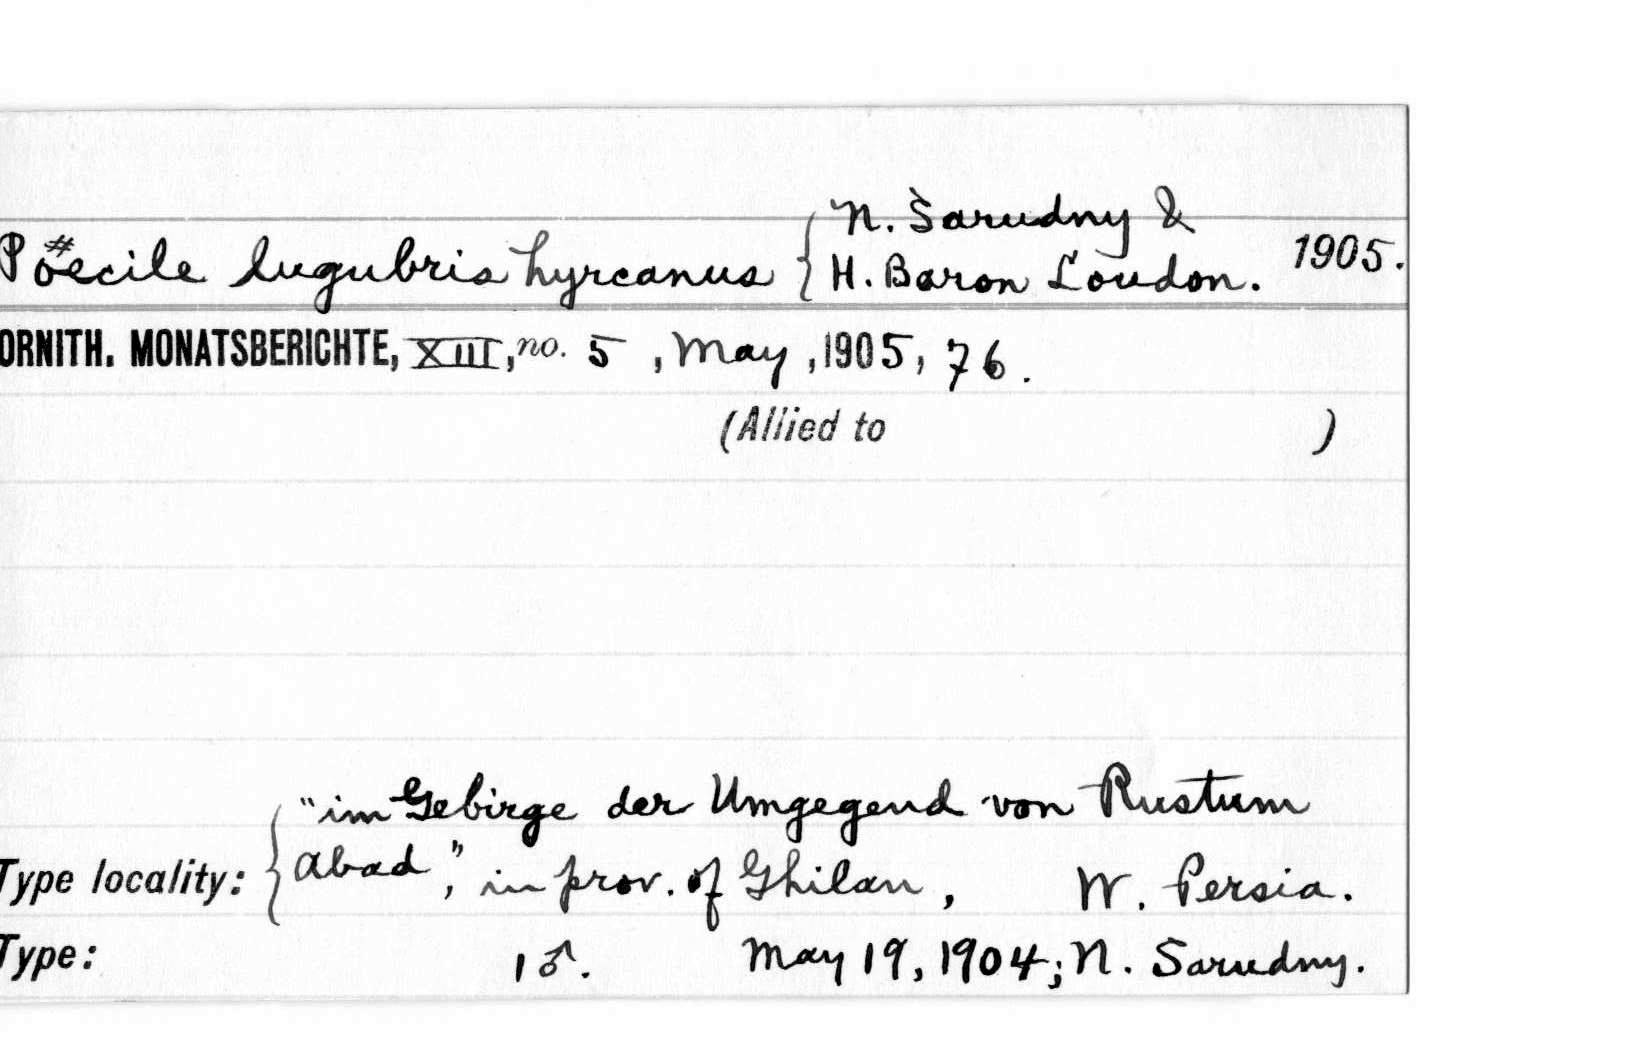 Pöecile lugubris hyrcanus { N. Sarudny & H. Baron Loudon. 1905.
ORNITH. MONATSBERICHTE, XIII, no. 5, May, 1905, 76.
(Allied to )
Type locality: { "im Gebirge der Umgegend von Rustum
Abad", in prov. of Ghilan, W. Persia.
Type: 1♂. May 19, 1904; N. Sarudny.